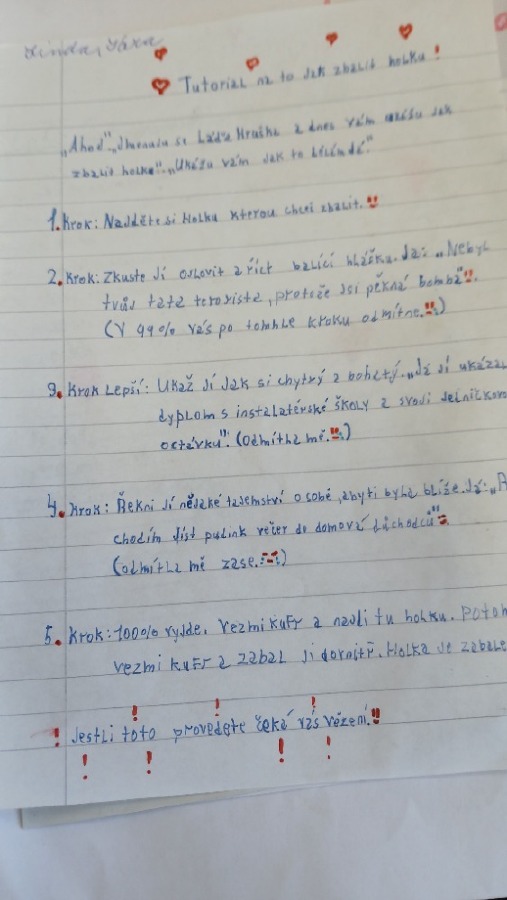 Linda, Yára
Tutorial na to Jak zbalit holku!
„Ahoj" „Jmenuju se Láďa Hruška a dnes vám ukážu jak
zbalit holku". „Ukážu vám Jak to
1. Krok: Najděte si Holku kterou chcei zbalit.!!
2. Krok: Zkuste Jí oslovit a říct balící hláška. Já: „Nebyl
tvůj táta terorista, protože jsi pěkná bomba"!!.
(V 99% vás po tomhle kroku odmítne.!!)
3. Krok Lepší: Ukaž Jí Jak si chytrý a bohatý. „Já Jí ukázal
dyplom s instalatérské školy a svoji
octávku". (odmítla mě.!!)
4. Krok: Řekni Jí nějaké tajemství o sobě, aby ti byla blíže. Já: „
chodím Jíst puding večer do domova důchodců"
(odmítla mě zase.!!)
5. Krok: 100% vyjde. Vezmi kufr a najdi tu holku. Potom
vezmi kufr a zabal Ji dovnitř. Holka Je zabale
! Jestli toto provedete čeká vás vězení.!!